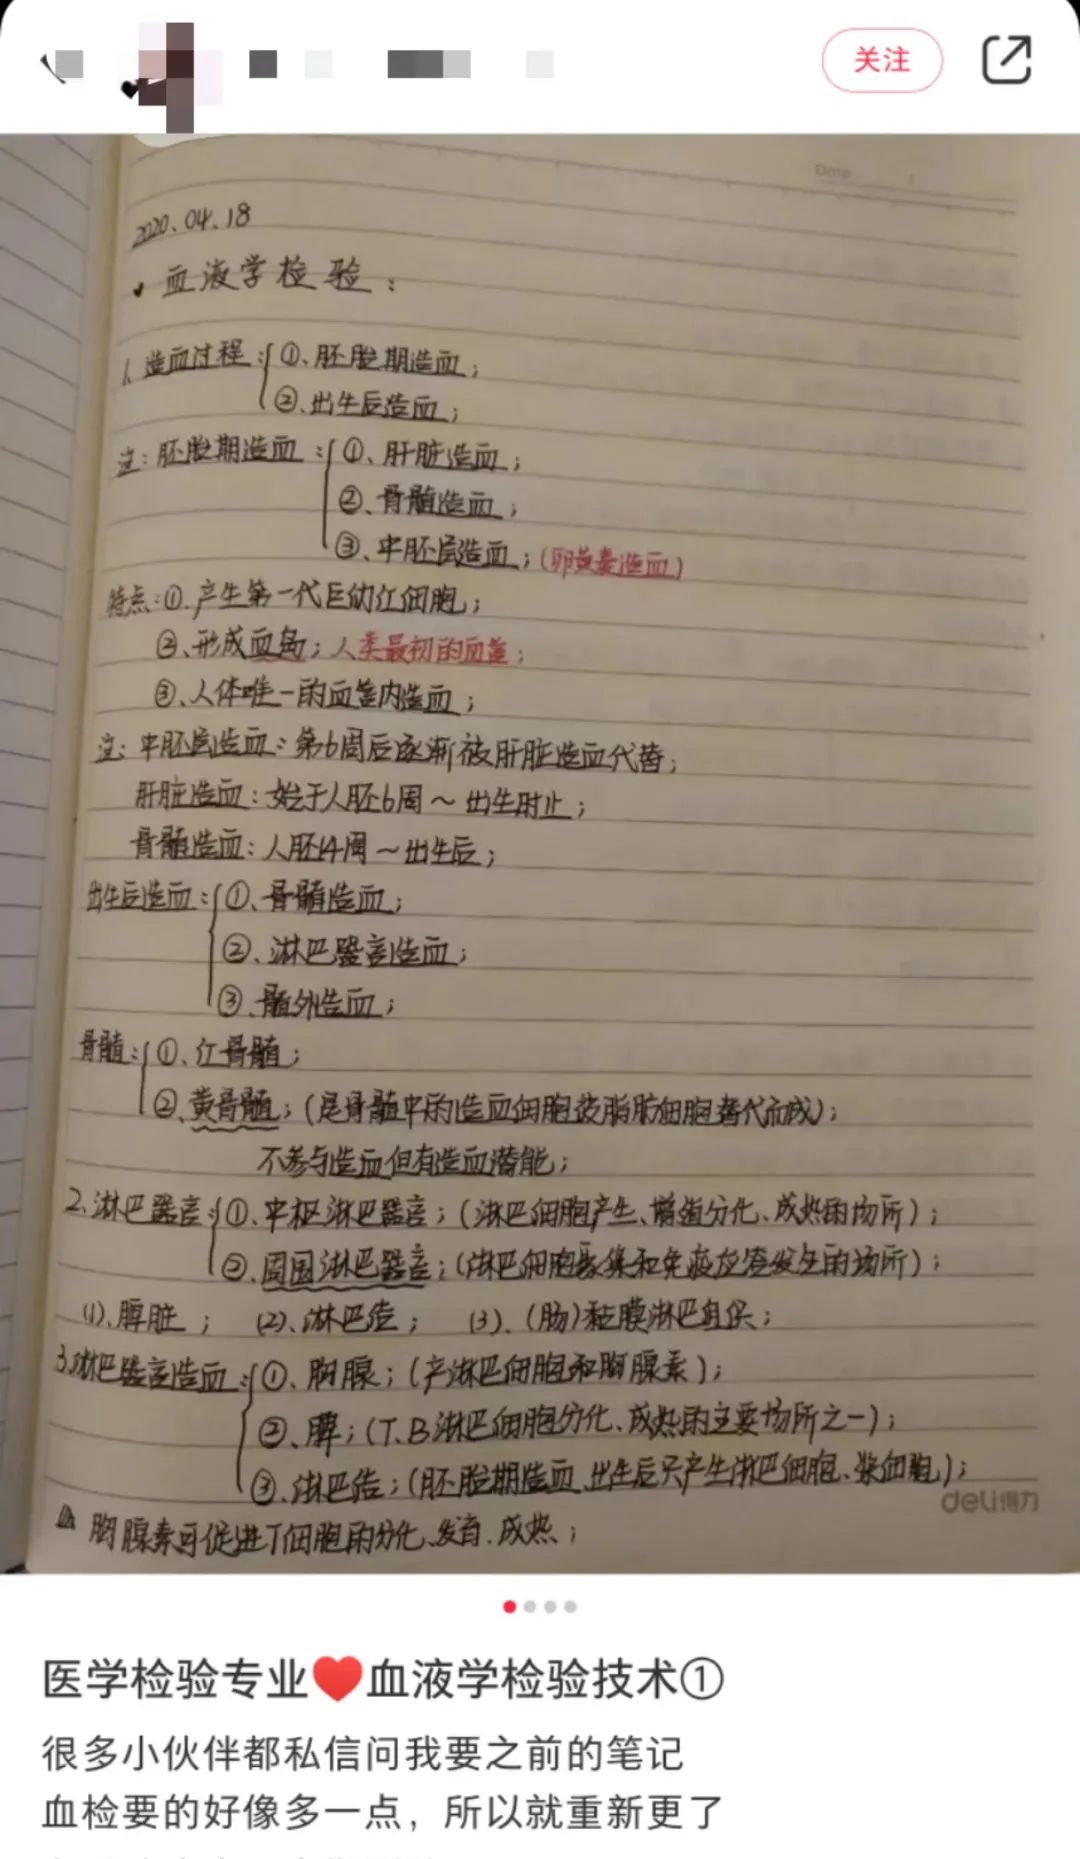 关注
Date
2020.04.18
血液学检验：
1、造血过程：①、胚胎期造血；
②、出生后造血；
注：胚胎期造血：①、肝脏造血；
②、骨髓造血；
③、中胚层造血；(卵黄囊造血)
特点：①、产生第一代巨幼红细胞；
②、形成血岛；人类最初的血管；
③、人体唯一的血管内造血；
注：中胚层造血：第6周后逐渐被肝脏造血代替；
肝脏造血：始于人胚6周～出生时止；
骨髓造血：人胚14周～出生后；
出生后造血：①、骨髓造血；
②、淋巴器官造血；
③、髓外造血；
骨髓：①、红骨髓；
②、黄骨髓；(是骨髓中的造血细胞被脂肪细胞替代而成)；
不参与造血但有造血潜能；
2.淋巴器官：①、中枢淋巴器官；(淋巴细胞产生、增殖分化、成熟的场所)；
②、周围淋巴器官；(淋巴细胞聚集和免疫应答发生的场所)；
(1)、脾脏； (2)、淋巴结； (3)、(肠)粘膜淋巴组织；
3.淋巴器官造血：①、胸腺；(产淋巴细胞和胸腺素)；
②、脾；(T、B淋巴细胞分化、成熟的主要场所之一)；
③、淋巴结；(胚胎期造血、出生后只产生淋巴细胞、浆细胞)；
deli得力
胸腺素可促进T细胞的分化、发育、成熟；
医学检验专业❤️血液学检验技术①
很多小伙伴都私信问我要之前的笔记
血检要的好像多一点，所以就重新更了